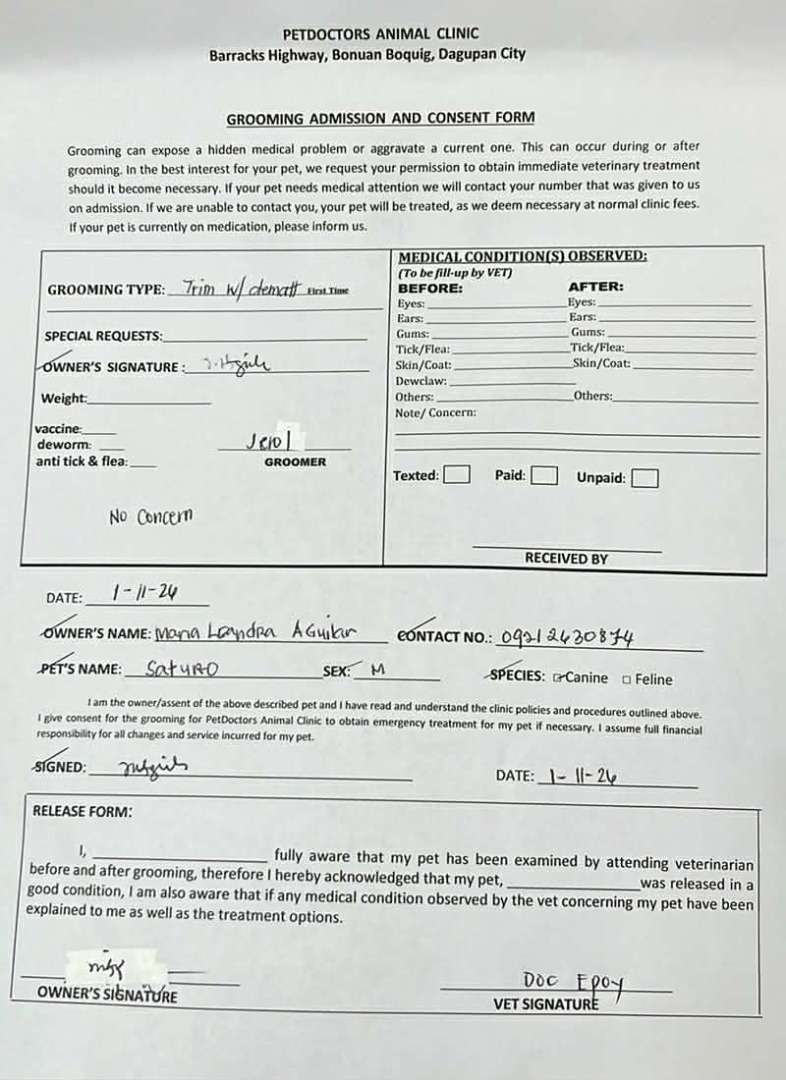 PETDOCTORS ANIMAL CLINIC
Barracks Highway, Bonuan Boquig, Dagupan City
GROOMING ADMISSION AND CONSENT FORM
Grooming can expose a hidden medical problem or aggravate a current one. This can occur during or after
grooming. In the best interest for your pet, we request your permission to obtain immediate veterinary treatment
should it become necessary. If your pet needs medical attention we will contact your number that was given to us
on admission. If we are unable to contact you, your pet will be treated, as we deem necessary at normal clinic fees.
If your pet is currently on medication, please inform us.
GROOMING TYPE: Trim w/ dematt First Time
SPECIAL REQUESTS:
OWNER'S SIGNATURE:
Weight:
vaccine:
deworm:
anti tick & flea:
Jerol
GROOMER
No Concern
MEDICAL CONDITION(S) OBSERVED:
(To be fill-up by VET)
BEFORE: AFTER:
Eyes: Eyes:
Ears: Ears:
Gums: Gums:
Tick/Flea: Tick/Flea:
Skin/Coat: Skin/Coat:
Dewclaw:
Others: Others:
Note/ Concern:
Texted: Paid: Unpaid:
RECEIVED BY
DATE: 1-11-26
OWNER'S NAME: Maria Leandra Aguilar CONTACT NO.: 09212630874
PET'S NAME: Saturo SEX: M SPECIES: Canine Feline
I am the owner/assent of the above described pet and I have read and understand the clinic policies and procedures outlined above.
I give consent for the grooming for PetDoctors Animal Clinic to obtain emergency treatment for my pet if necessary. I assume full financial
responsibility for all changes and service incurred for my pet.
SIGNED: DATE: 1-11-26
RELEASE FORM:
I, fully aware that my pet has been examined by attending veterinarian
before and after grooming, therefore I hereby acknowledged that my pet, was released in a
good condition, I am also aware that if any medical condition observed by the vet concerning my pet have been
explained to me as well as the treatment options.
OWNER'S SIGNATURE
DOC EPOY
VET SIGNATURE